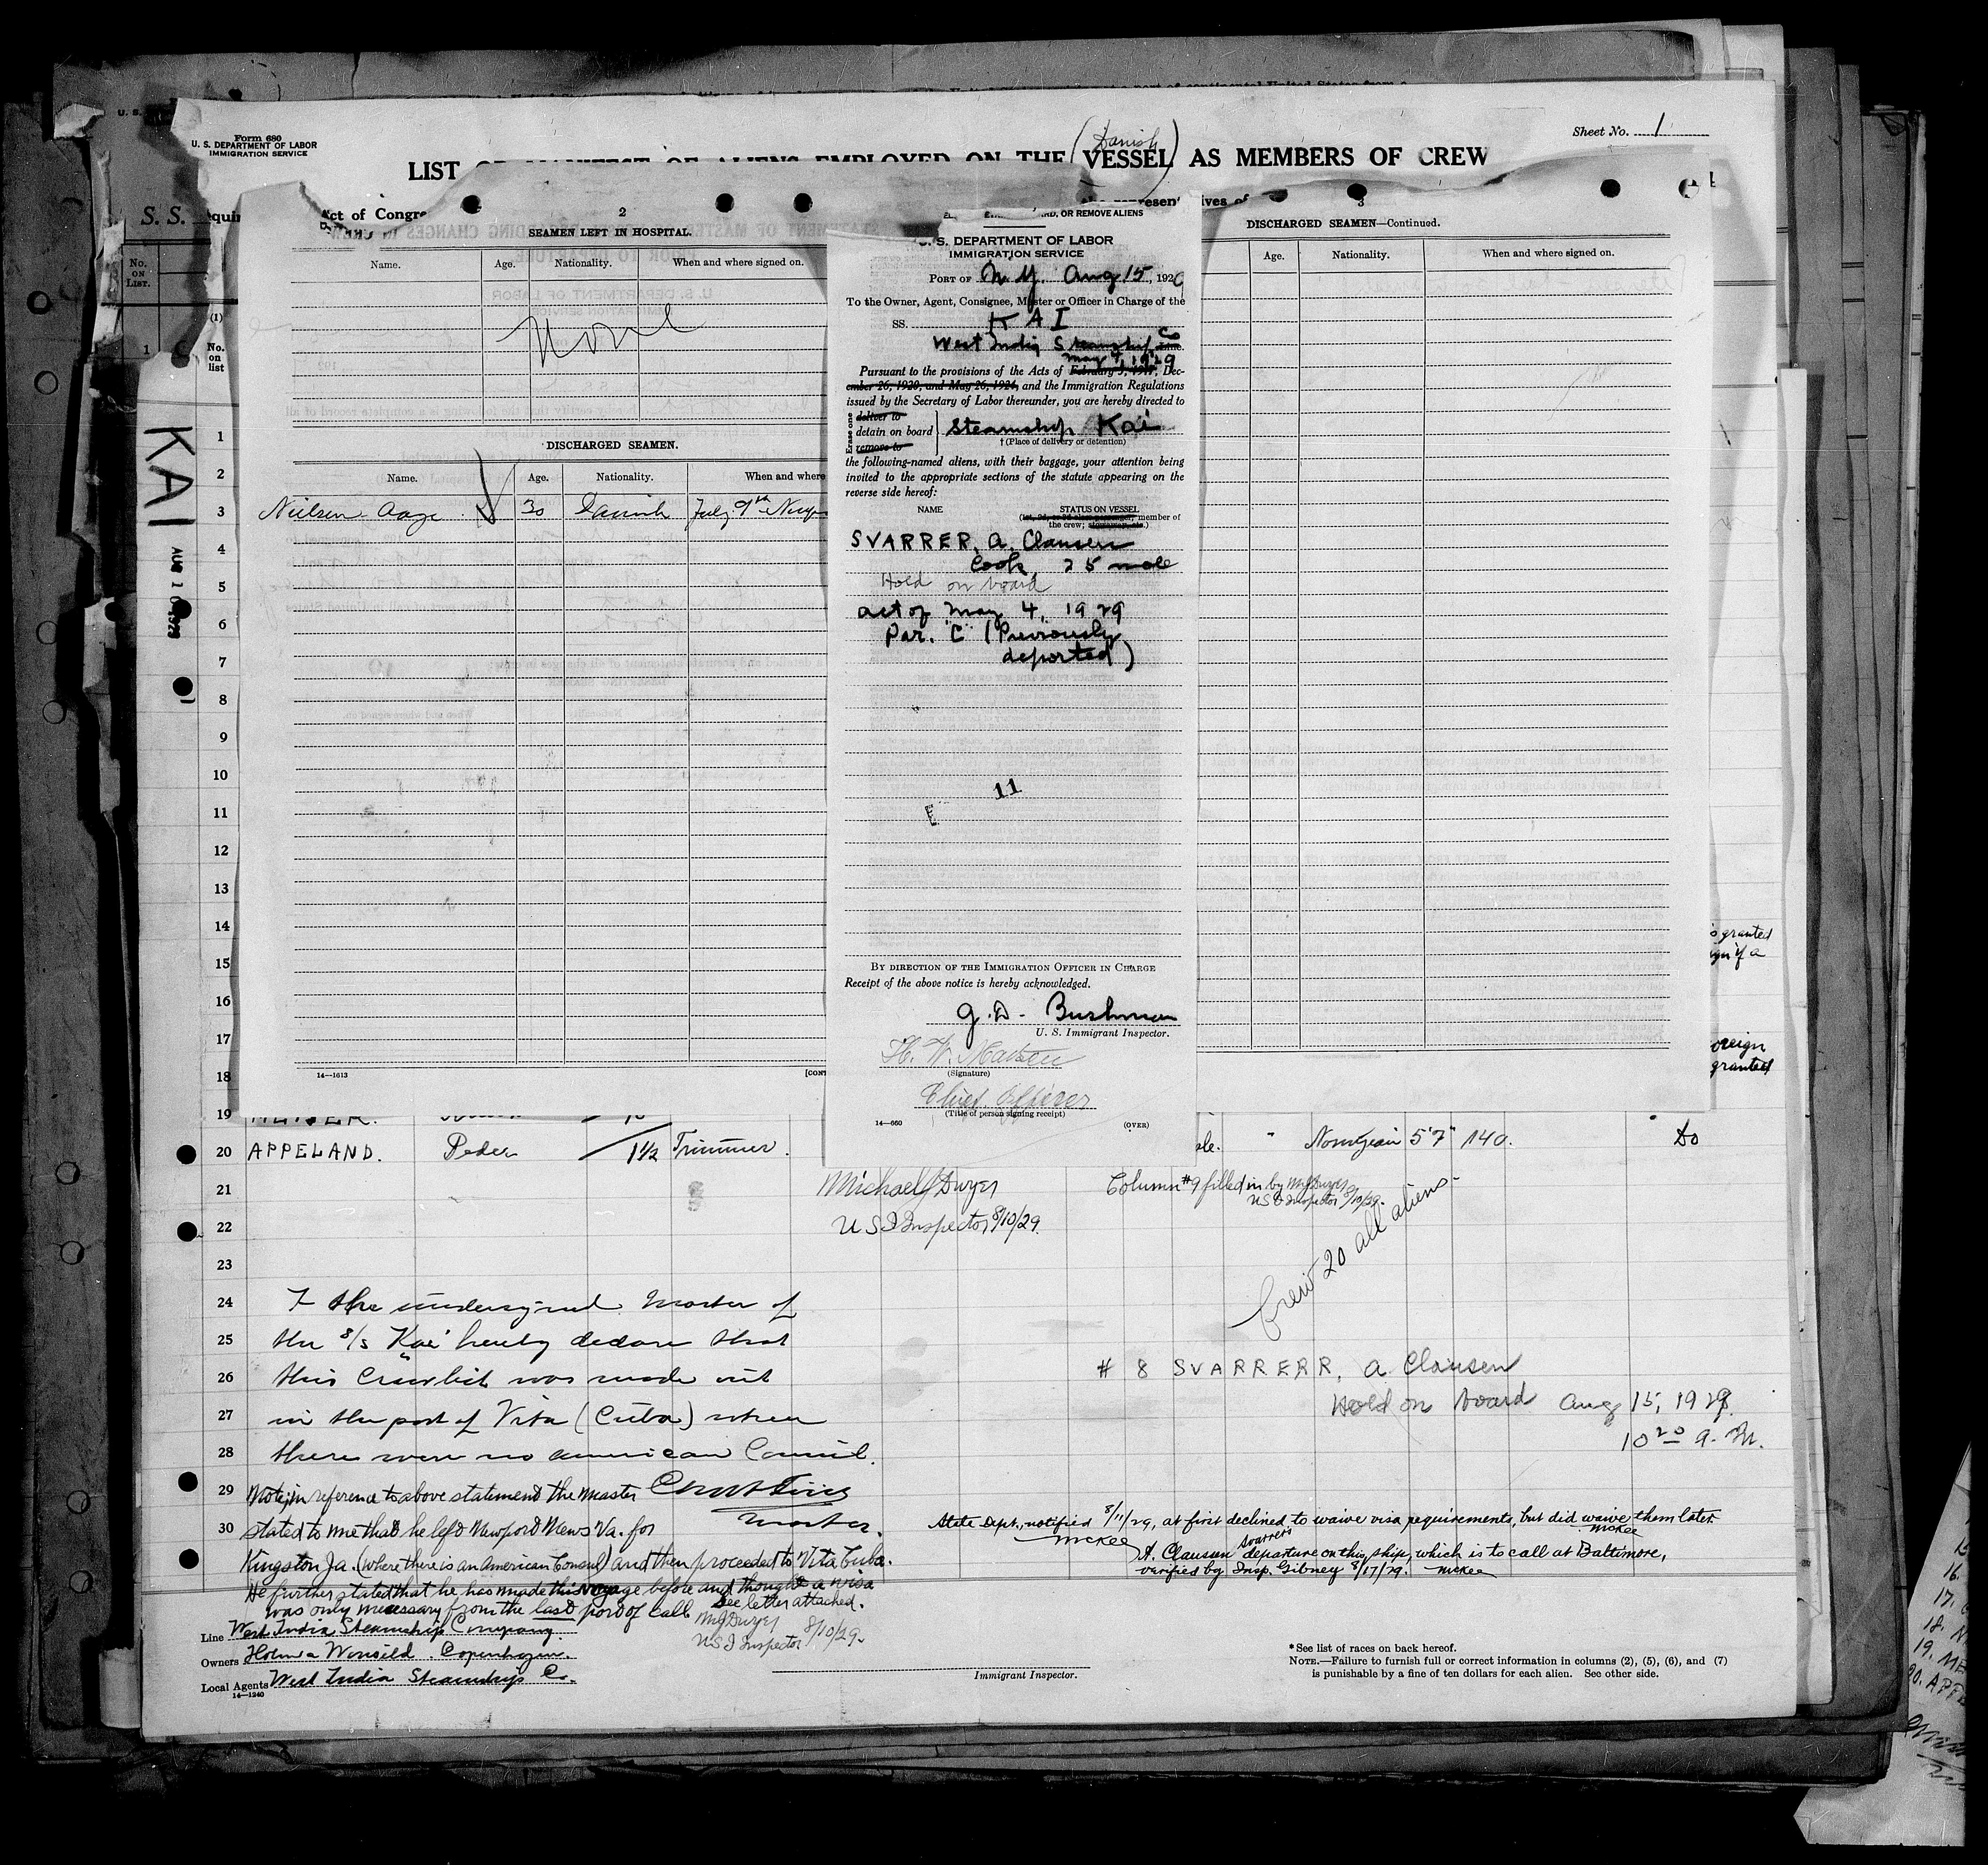 Form 680
U. S. DEPARTMENT OF LABOR
IMMIGRATION SERVICE
Sheet No. 1
(Danish)
LIST OR MANIFEST OF ALIENS EMPLOYED ON THE VESSEL AS MEMBERS OF CREW
S. S.
Act of Congre
the representatives of
No. on List.
(1)
No. on list
KAI
AUG 10 1929
2
SEAMEN LEFT IN HOSPITAL.
Name. Age. Nationality. When and where signed on.
None
DISCHARGED SEAMEN.
Name. Age. Nationality. When and where
Nielsen Aage 30 Danish July 9th Newp
14—1613
[CONT
RD, OR REMOVE ALIENS
U. S. DEPARTMENT OF LABOR
IMMIGRATION SERVICE
PORT OF N.Y. Aug 15, 192
To the Owner, Agent, Consignee, Master or Officer in Charge of the
SS. KAI
West India Steamship Co
May 4, 1929
Pursuant to the provisions of the Acts of February 5, 1917, Dec-
ember 26, 1920, and May 26, 1924, and the Immigration Regulations
issued by the Secretary of Labor thereunder, you are hereby directed to
Erase one
deliver to
detain on board Steamship Kai
remove to
† (Place of delivery or detention)
the following-named aliens, with their baggage, your attention being
invited to the appropriate sections of the statute appearing on the
reverse side hereof:
NAME STATUS ON VESSEL
(1st, 2d, or 3d class passenger, member of
the crew; stowaway, etc.)
SVARRER, A. Clausen
Cook 25 male
Hold on board
act of May 4, 1929
Par. "C" (Previously
deported)
11
BY DIRECTION OF THE IMMIGRATION OFFICER IN CHARGE
Receipt of the above notice is hereby acknowledged.
G. D. Bushman
U. S. Immigrant Inspector.
(Signature)
Chief Officer
(Title of person signing receipt)
14—660
(OVER)
3
DISCHARGED SEAMEN—Continued.
Age. Nationality. When and where signed on.
granted
if a
oreign
granted
1
2
3
4
5
6
7
8
9
10
11
12
13
14
15
16
17
18
19
20 APPELAND. Peder 1½ Trimmer. ale. " Norwegian 5'7" 140. Do
21 Michael J Dwyer
22 U S I Inspector 8/10/29.
Column #9 filled in by M J Dwyer
U S I Inspector 8/10/29.
Crew 20 all aliens.
23
24 I the undersigned Master of
25 the S/S "Kai" hereby declare that
26 this Crewlist was made out
27 in the port of Vita (Cuba) where
28 there were no american Consul.
# 8 SVARRERR, A. Clausen
Hold on board Aug 15, 1929.
10 20 a. M.
29 Note; in reference to above statement the master
Master.
30 stated to me that he left Newport News Va. for
Kingston Ja. (where there is an American Consul) and then proceeded to Vita Cuba.
He further stated that he has made this voyage before and thought a visa
was only necessary from the last port of call. See letter attached.
M J Dwyer
U S I Inspector 8/10/29.
State Dept., notified 8/11/29, at first declined to waive visa requirements, but did waive them later.
McKee
McKee
A. Clausen Svarrer's departure on this ship, which is to call at Baltimore,
verified by Insp. Gibney 8/17/29. McKee
Line West India Steamship Company.
Owners Holm & Wonsild. Copenhagen.
Local Agents West India Steamship Co.
14—1240
Immigrant Inspector.
* See list of races on back hereof.
NOTE.—Failure to furnish full or correct information in columns (2), (5), (6), and (7)
is punishable by a fine of ten dollars for each alien. See other side.
16.
17.
18.
19. ME
20. APPE